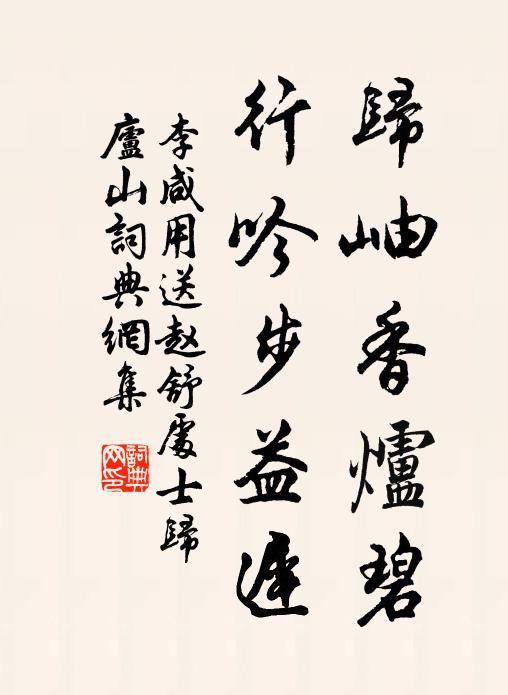 歸岫香爐碧
行吟步益遲
李咸用送赵舒處士歸
廬山詞典網集
詞典
网印